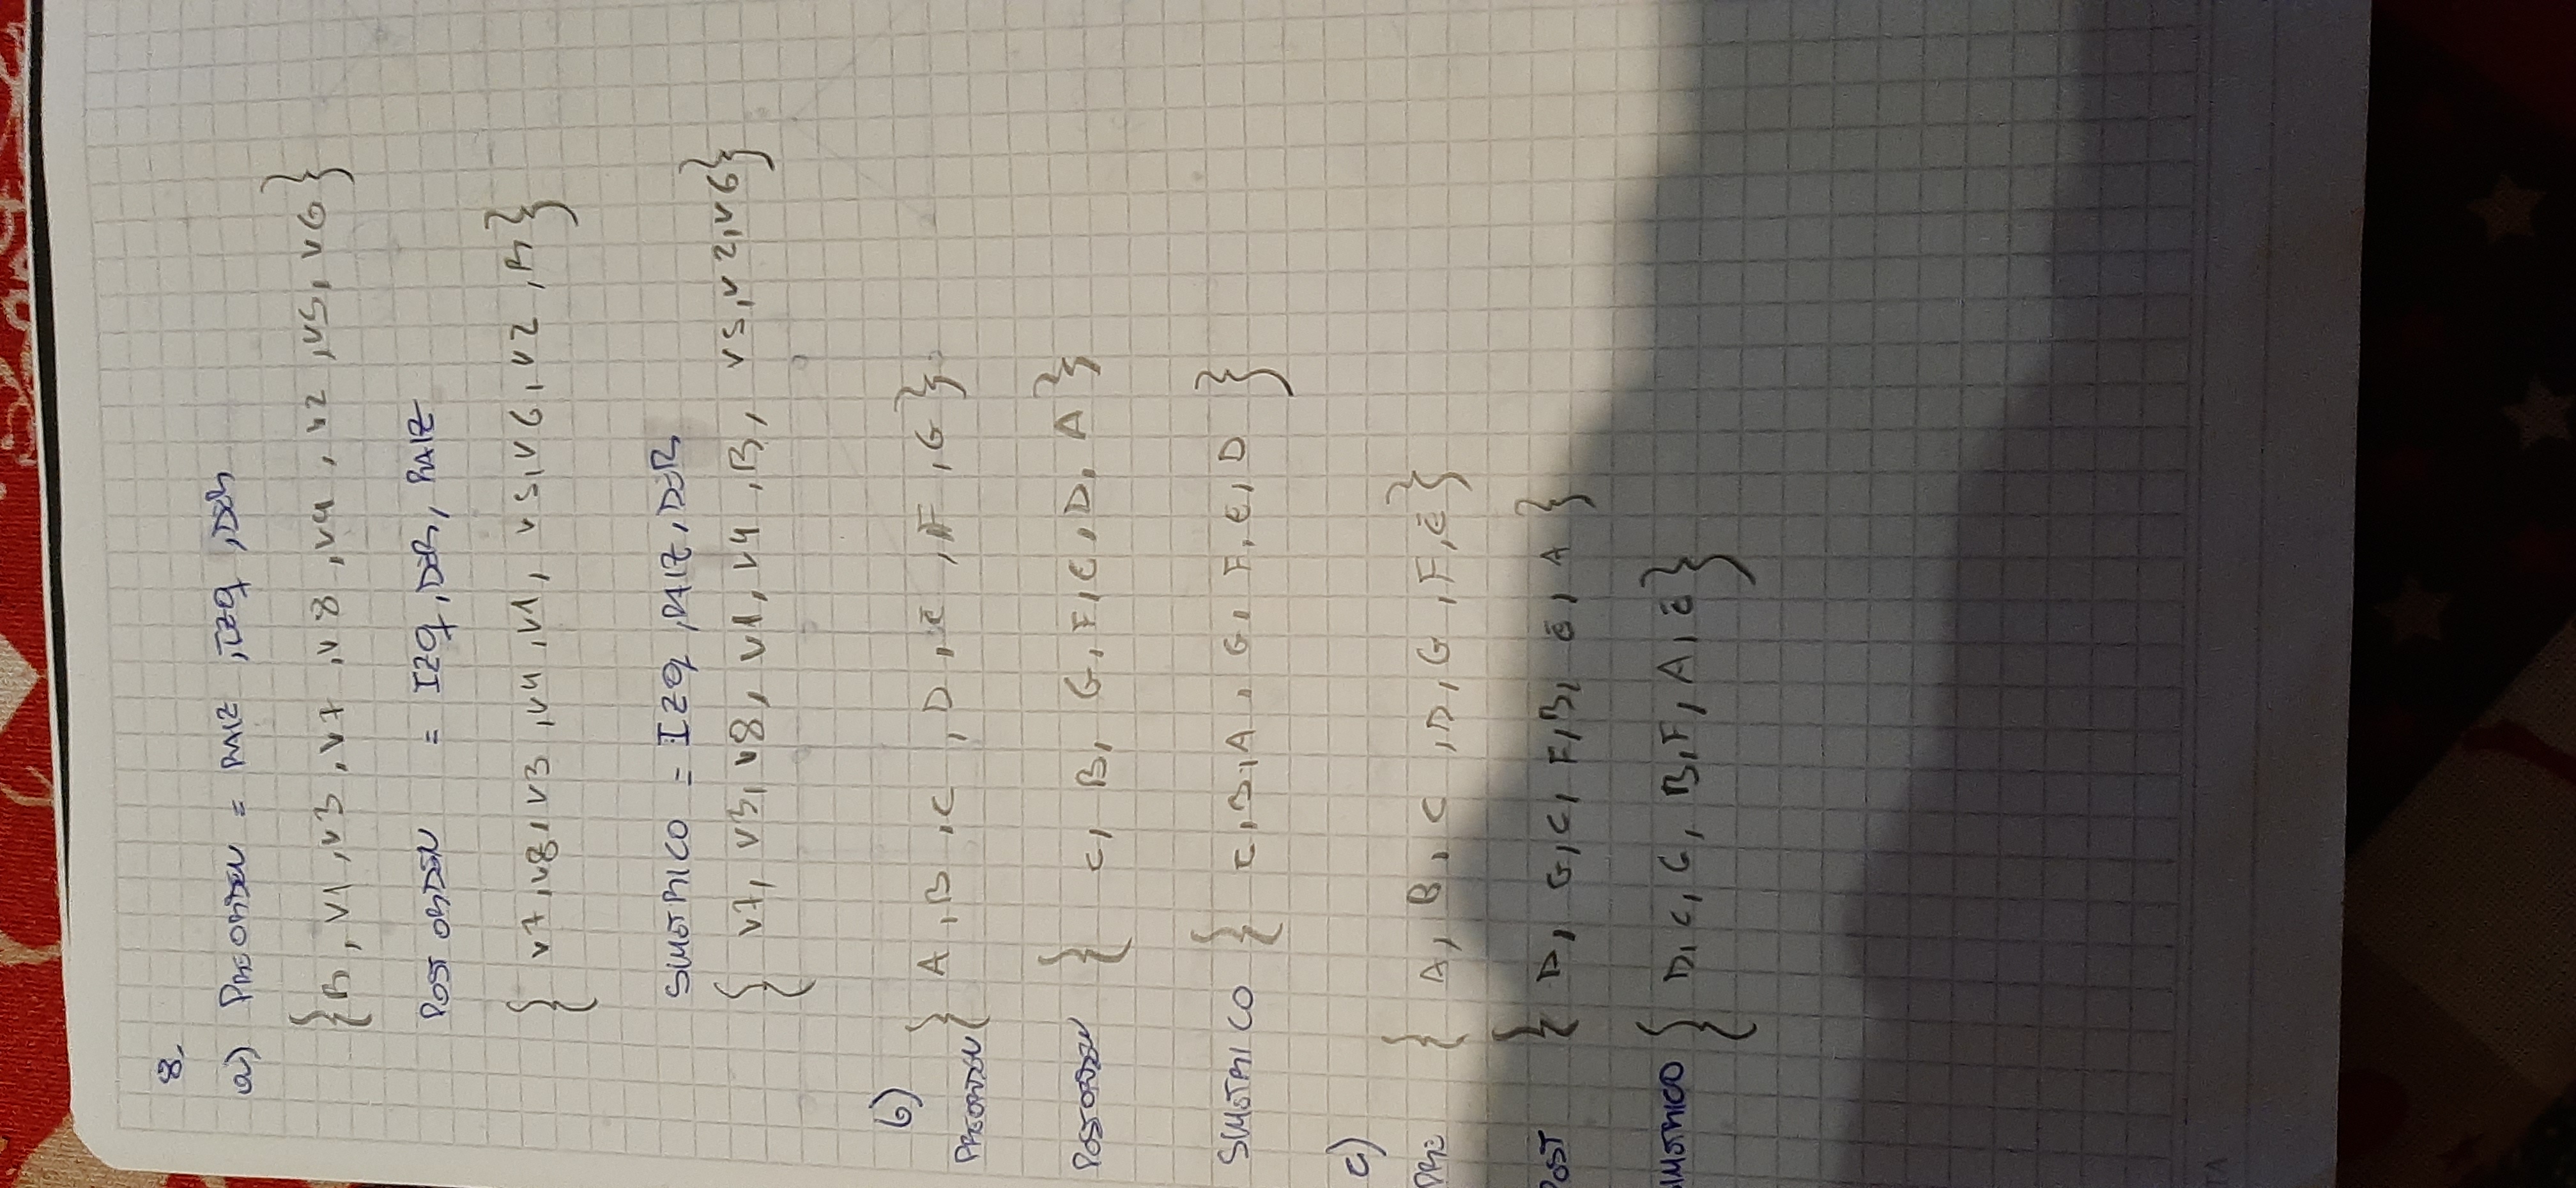 8.
a) PREORDEN = RAIZ , IZQ , DER
{R, V1, V3, V7, V8, V4, V2, V5, V6}
POSTORDEN = IZQ, DER, RAIZ
{ V7, V8, V3, V4, V1, V5, V6, V2, R}
SIMETRICO = IZQ, RAIZ, DER
{ V7, V3, V8, V1, V4, R, V5, V2, V6}
b)
PREORDEN { A, B, C, D, E, F, G }
POSTORDEN { C, B, G, F, E, D, A }
SIMETRICO { C, B, A, G, F, E, D }
c)
PRE { A, B, C, D, G, F, E }
POST { D, G, C, F, B, E, A }
IMETRICO { D, C, G, B, F, A, E }
TA